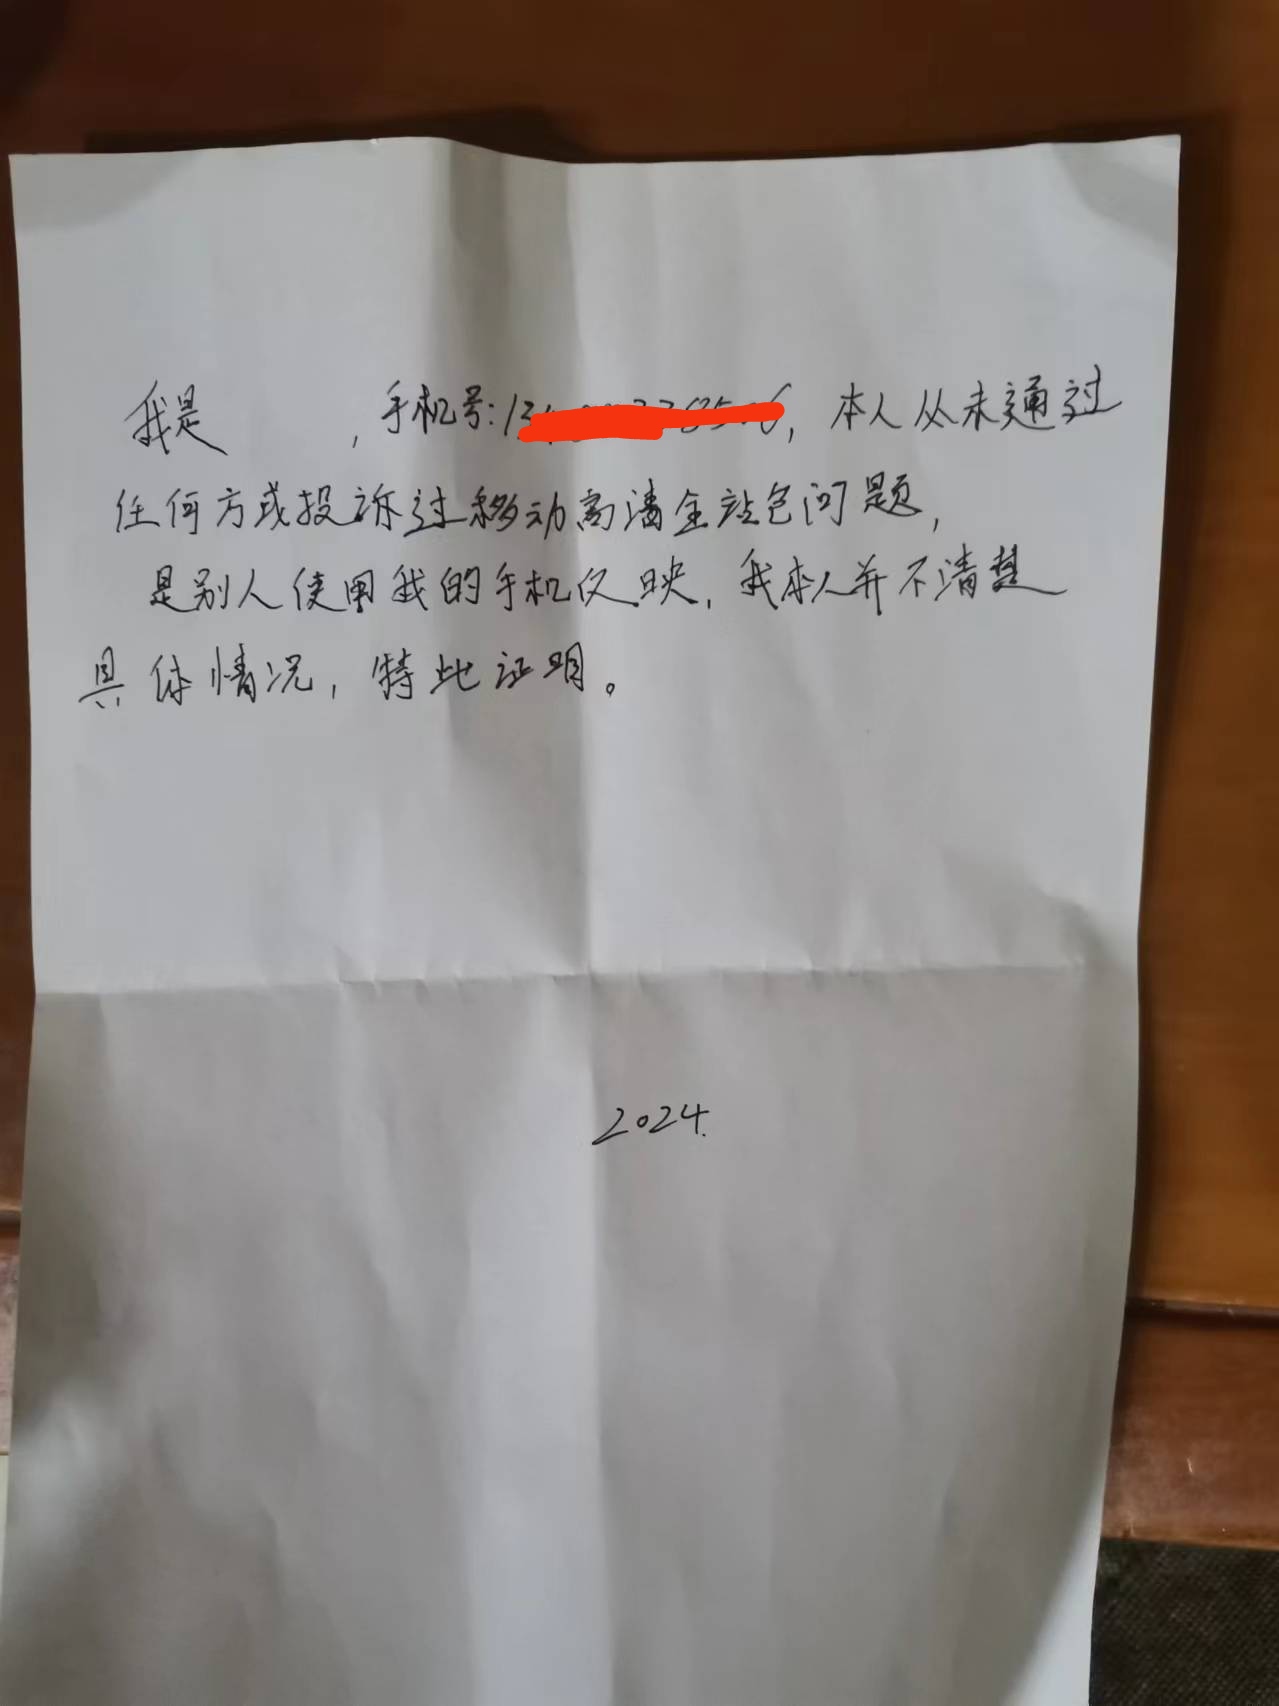 我是 ,手机号:13 , 本人从未通过
任何方或投诉过移动高清全站包问题,
是别人使用我的手机反映,我本人并不清楚
具体情况,特此证明。
2024.